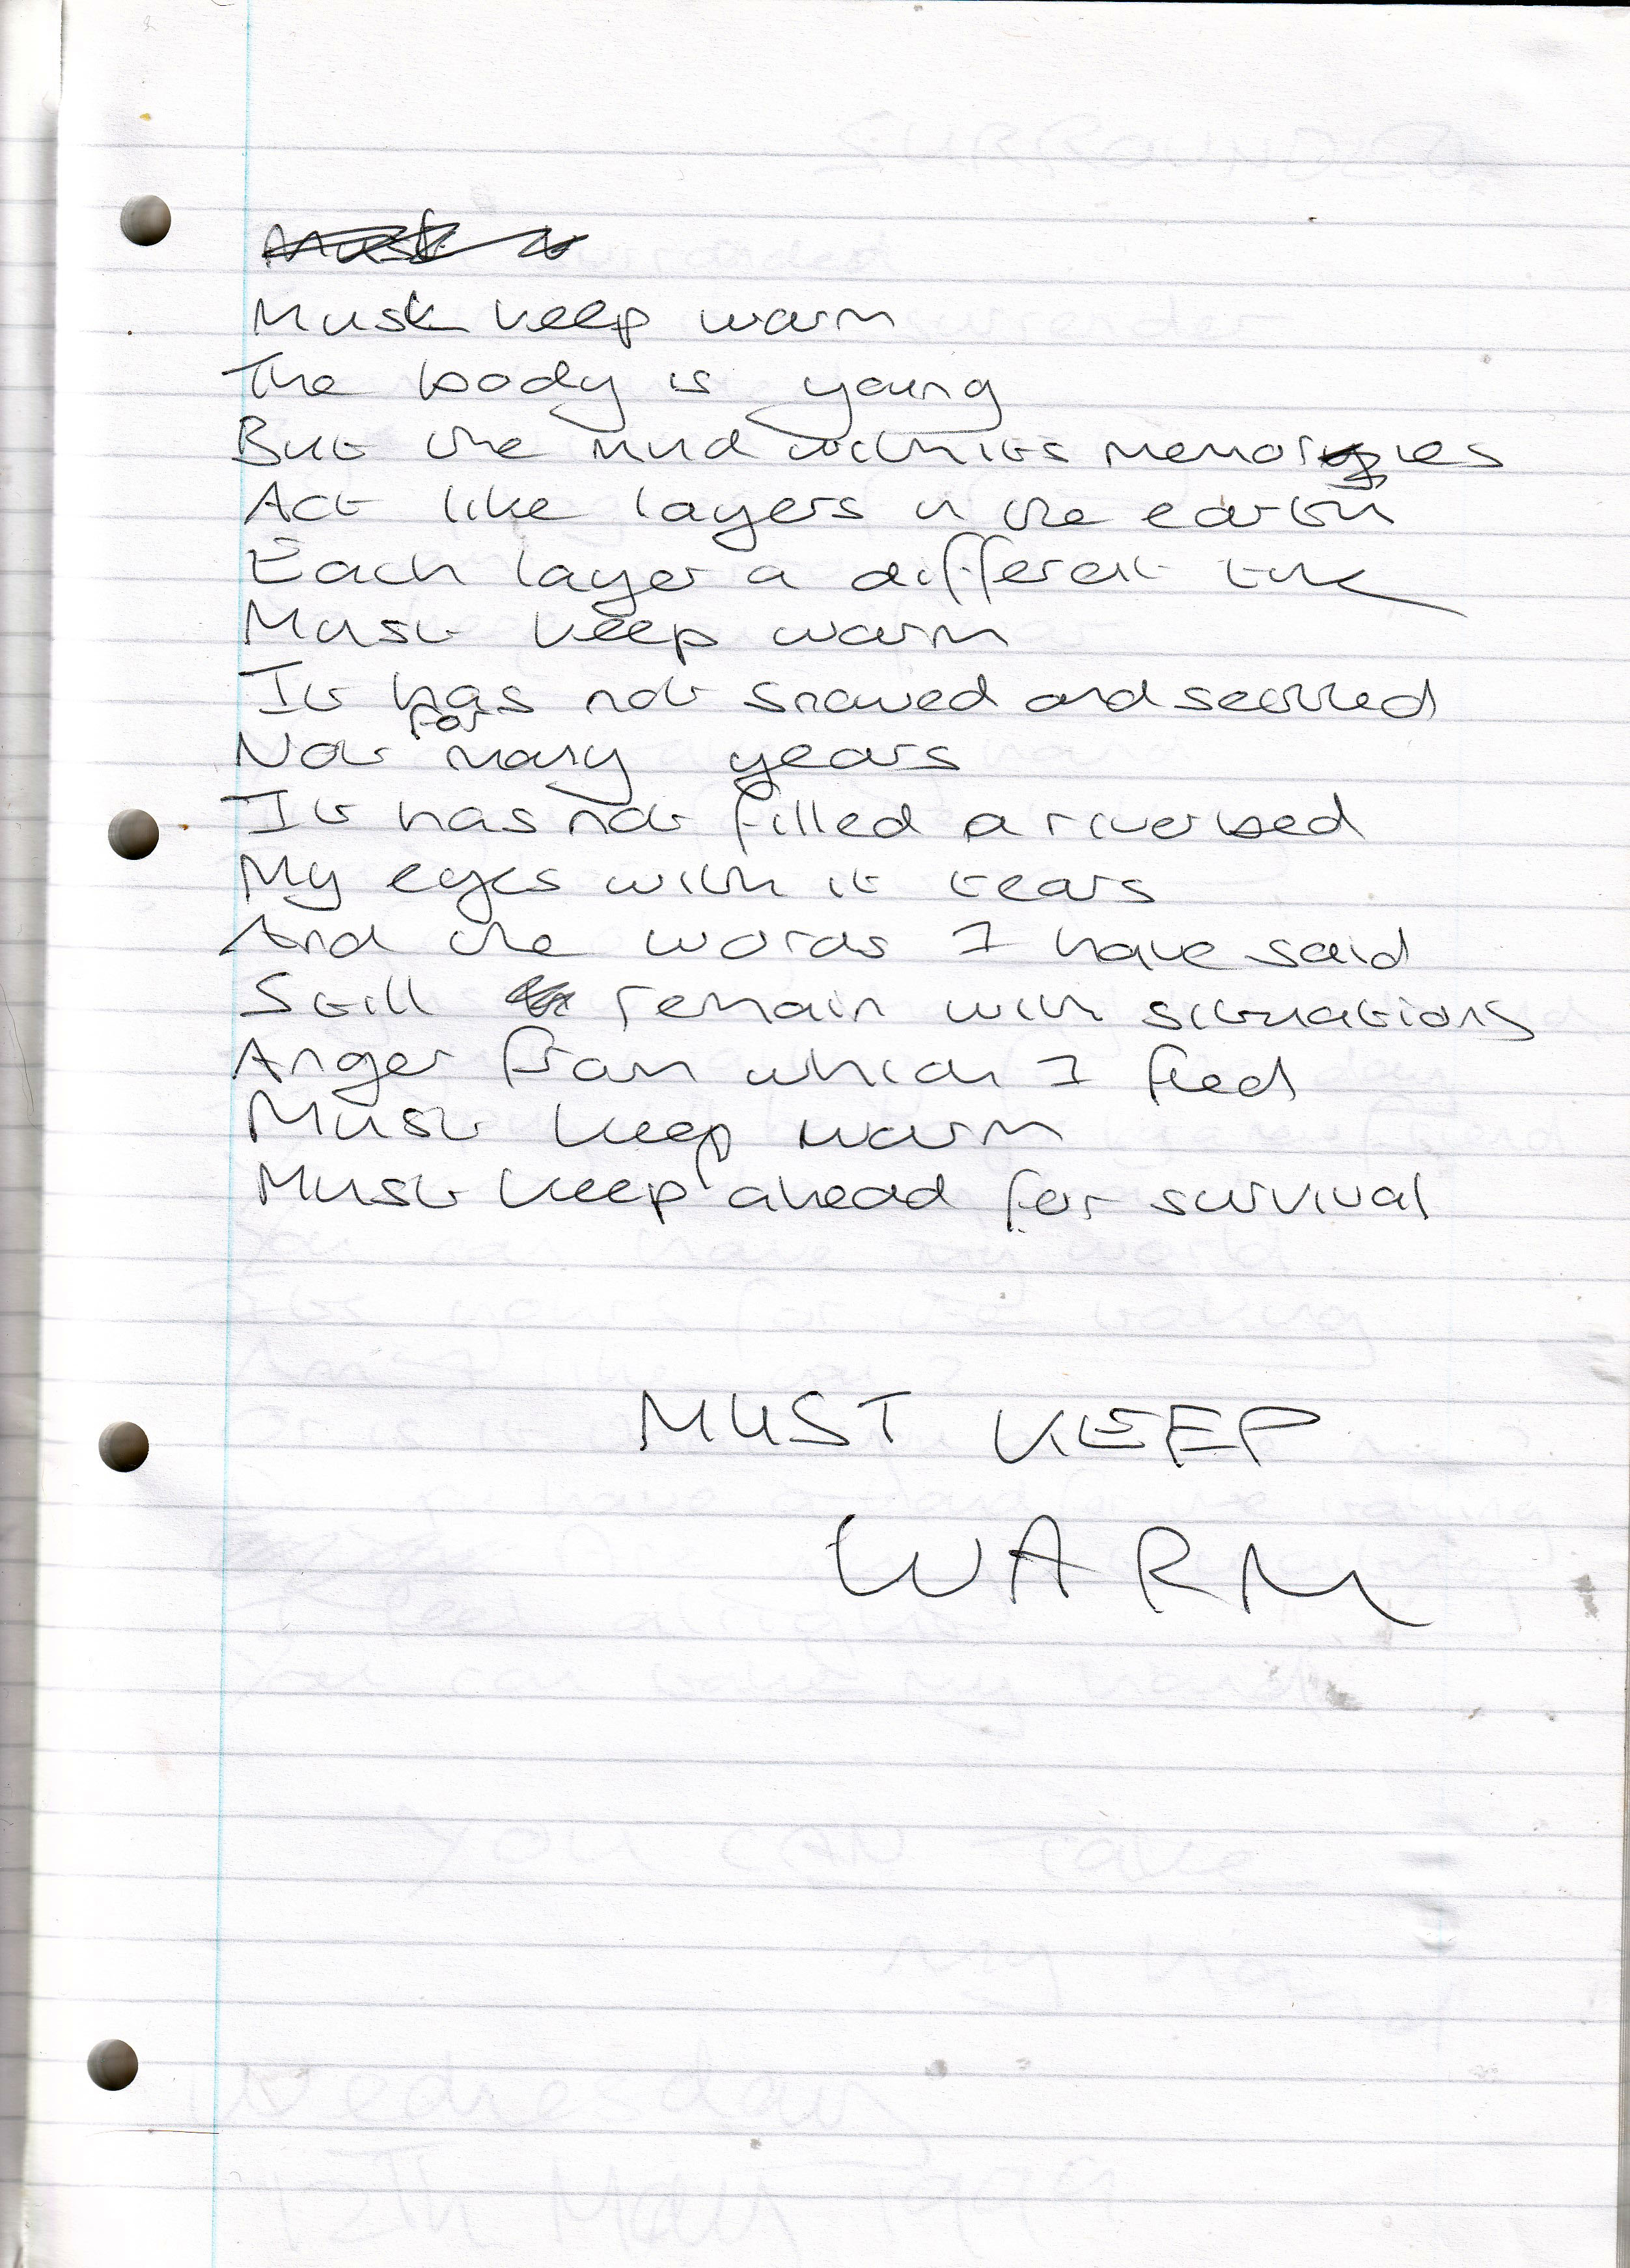 Must keep warm
The body is young
But the mind with its memories
Act like layers in the earth
Each layer a different time
Must keep warm
It has not snowed and settled
Not for many years
It has not filled a riverbed
My eyes with it tears
And the words I have said
Still remain with situations
Anger from which I fled
Must keep warm
Must keep ahead for survival
MUST KEEP
WARM
You can have my world
You can take my hand
YOU CAN Take
my hand
Wednesday
12Th May 1999